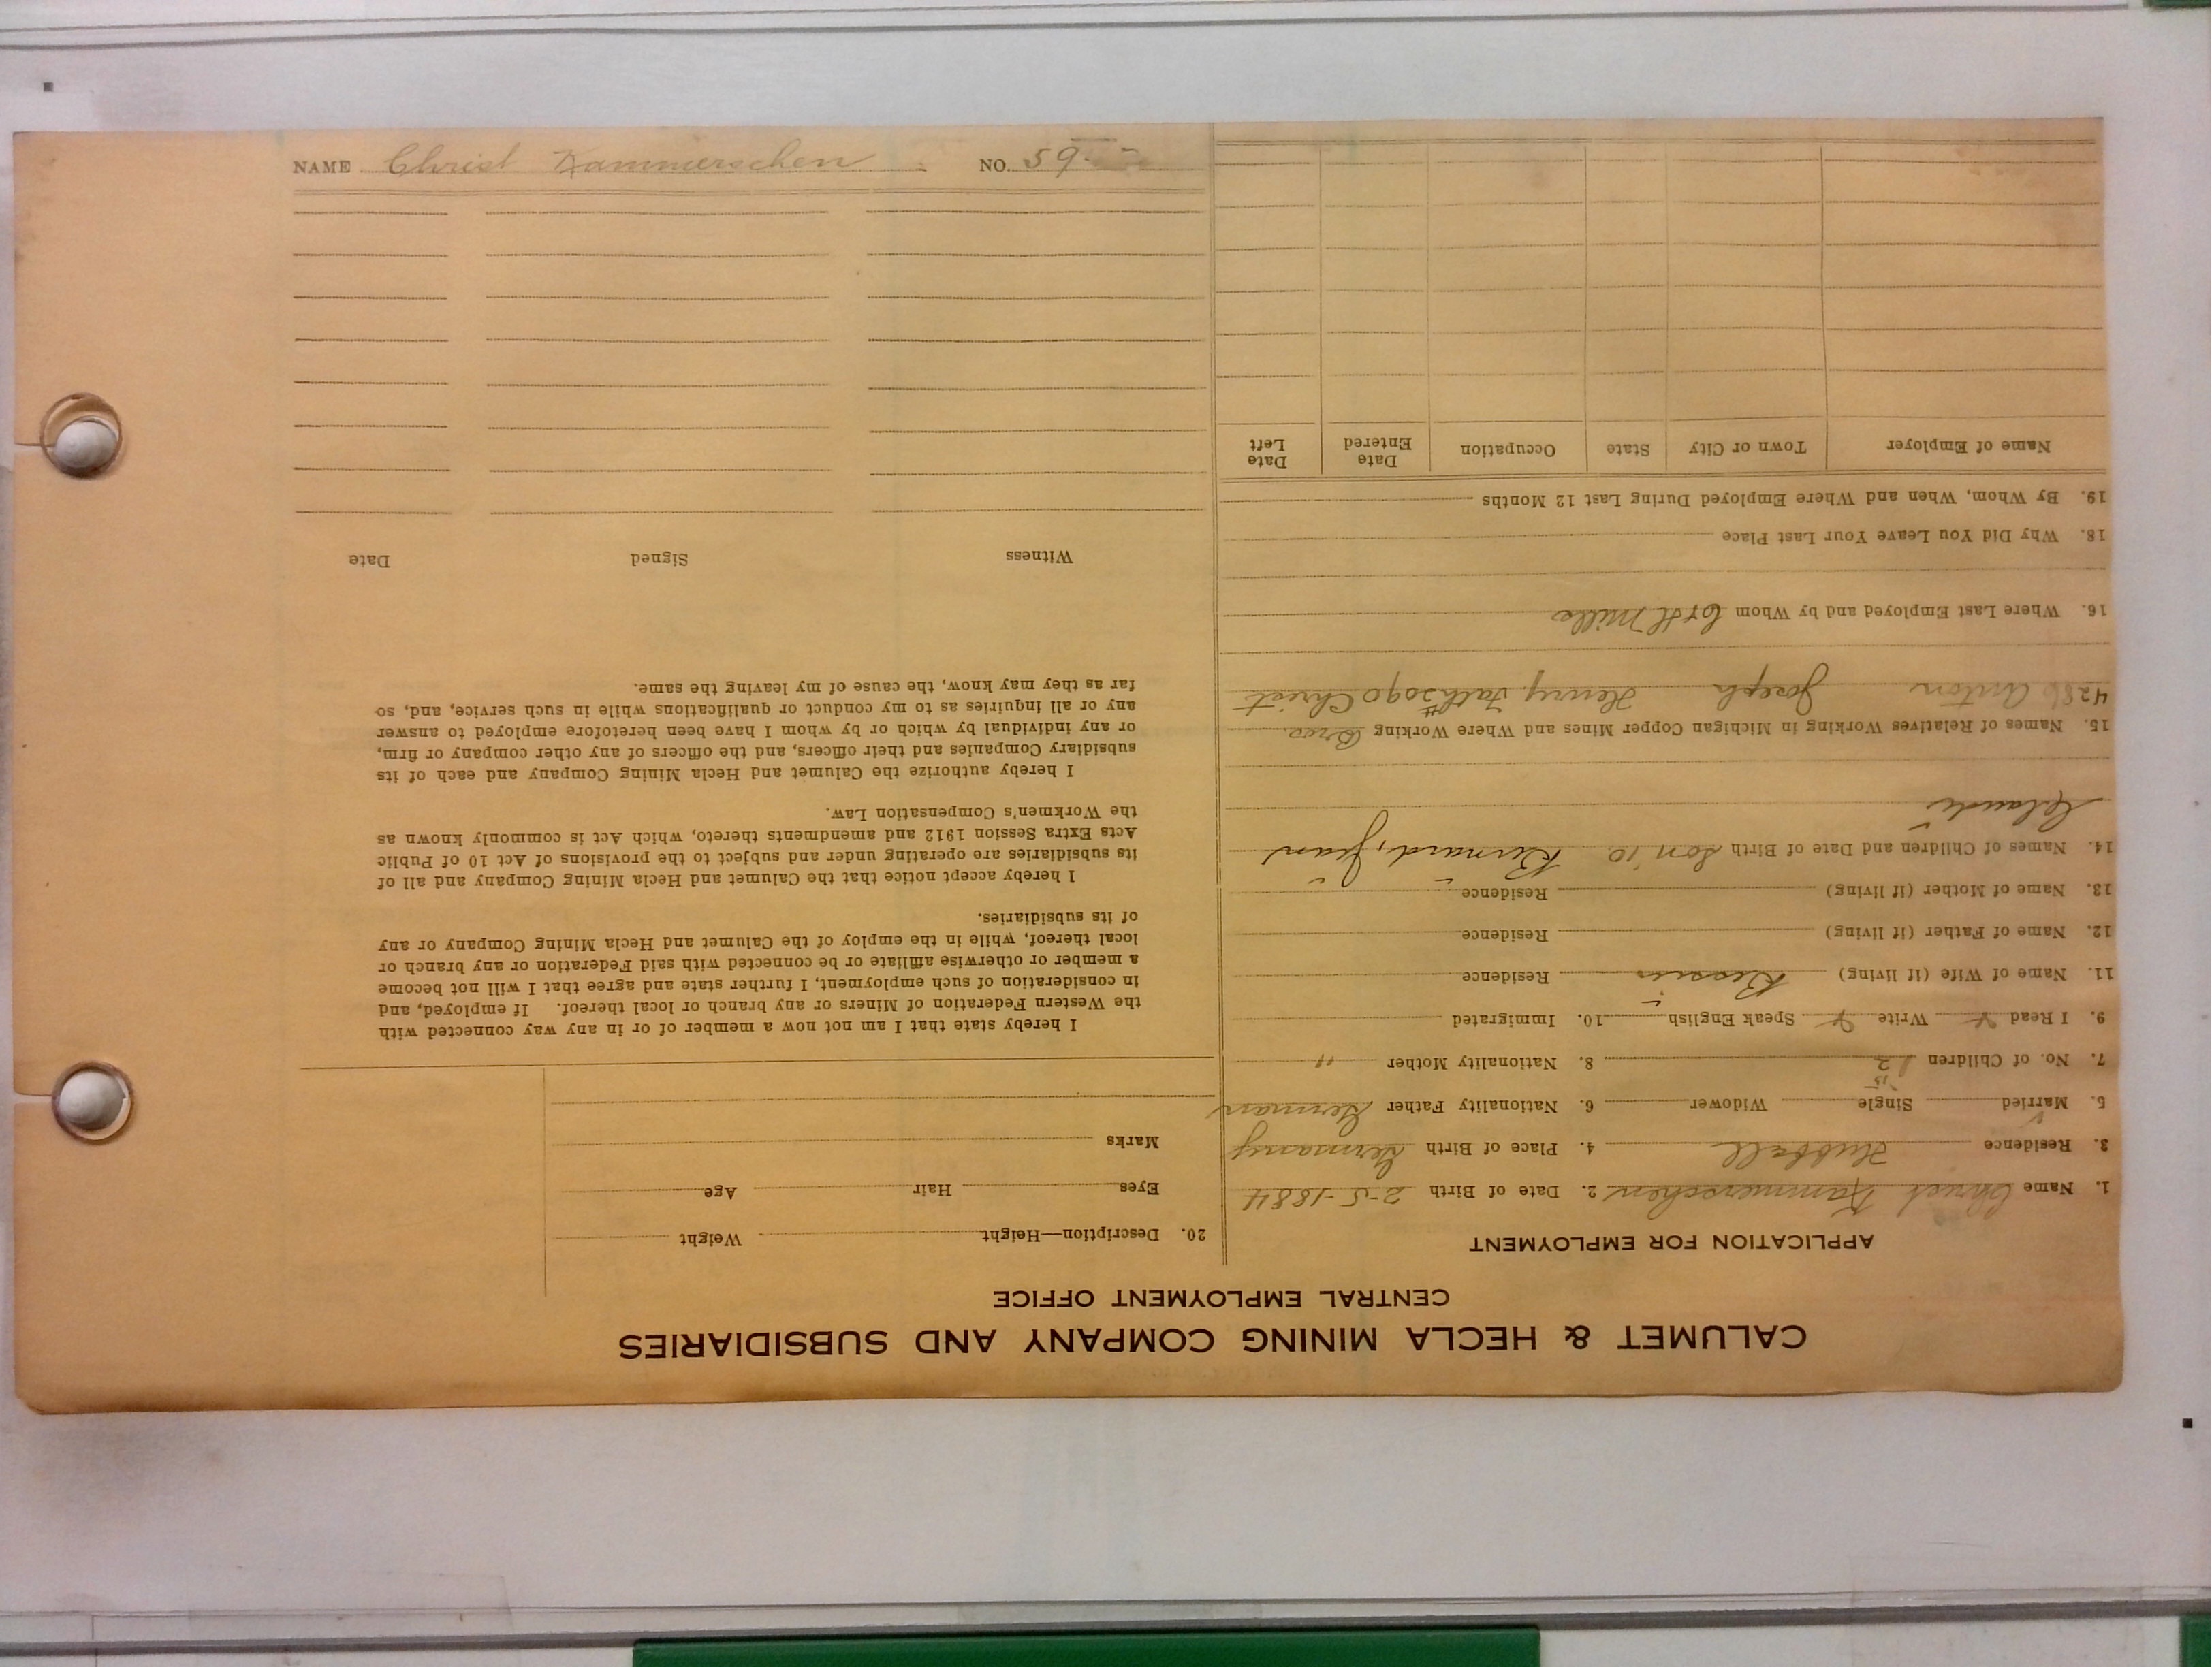 CALUMET & HECLA MINING COMPANY AND SUBSIDIARIES
CENTRAL EMPLOYMENT OFFICE
APPLICATION FOR EMPLOYMENT
1. Name Christ Kammerschen 2. Date of Birth 2-5-1884
3. Residence Hubbell 4. Place of Birth Germany
5. Married Single Widower 6. Nationality Father German
7. No. of Children 2 8. Nationality Mother "
9. I Read Write Speak English 10. Immigrated
11. Name of Wife (if living) Bessie Residence
12. Name of Father (if living) Residence
13. Name of Mother (if living) Residence
14. Names of Children and Date of Birth Son '10 Bernard, Jean
Claude
15. Names of Relatives Working in Michigan Copper Mines and Where Working Bros.
Anton Joseph Henry, Fath #2090 Christ
16. Where Last Employed and by Whom C & H Mills
18. Why Did You Leave Your Last Place
19. By Whom, When and Where Employed During Last 12 Months
Name of Employer Town or City State Occupation Date Entered Date Left
20. Description—Height Weight
Eyes Hair Age
Marks
I hereby state that I am not now a member of or in any way connected with
the Western Federation of Miners or any branch or local thereof. If employed, and
in consideration of such employment, I further state and agree that I will not become
a member or otherwise affiliate or be connected with said Federation or any branch or
local thereof, while in the employ of the Calumet and Hecla Mining Company or any
of its subsidiaries.
I hereby accept notice that the Calumet and Hecla Mining Company and all of
its subsidiaries are operating under and subject to the provisions of Act 10 of Public
Acts Extra Session 1912 and amendments thereto, which Act is commonly known as
the Workmen's Compensation Law.
I hereby authorize the Calumet and Hecla Mining Company and each of its
subsidiary Companies and their officers, and the officers of any other company or firm,
or any individual by which or by whom I have been heretofore employed to answer
any or all inquiries as to my conduct or qualifications while in such service, and, so
far as they may know, the cause of my leaving the same.
Witness Signed Date
NAME Christ Kammerschen NO. 59